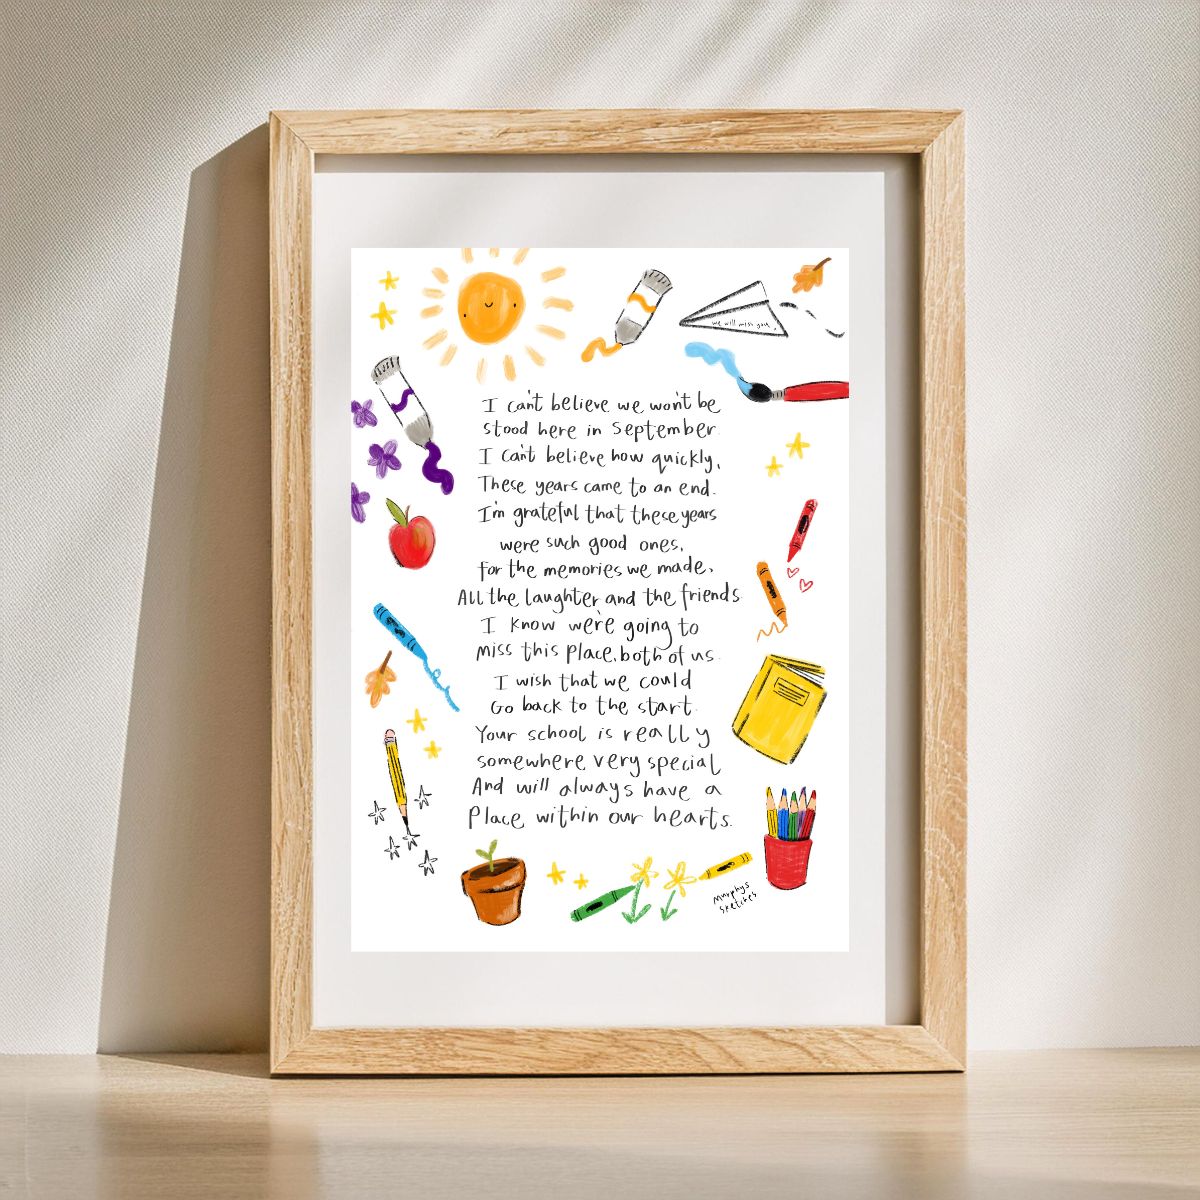 we will miss you.
I can't believe we won't be
stood here in September.
I can't believe how quickly,
These years came to an end.
I'm grateful that these years
were such good ones,
for the memories we made,
All the laughter and the friends.
I know we're going to
miss this place, both of us.
I wish that we could
Go back to the start.
Your school is really
somewhere very special
And will always have a
Place within our hearts.
Murphys
Sketches